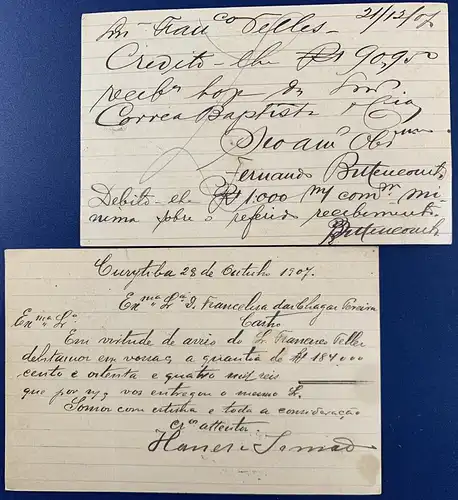 Snr. Franco Telles - 21/12/07
Credito-lhe R$ 90,950
recebi hoje de Snr
Correa Baptista & Cia
Seo amº Obrº
Fernando Bittencourt
Debito-lhe R$ 1.000 m/ commm mi-
nima sobre o referido recebimento.
Bittencourt
Curytiba 28 de Outubro 1907.
Exma Sra D. Francelisa das Chagas Pereira
Castro
Exma Sra
Em virtude de aviso do Sr. Francisco Telles
debitamos em vossa c/ a quantia de R$ 184.000
cento e oitenta e quatro mil reis
que por n/c vos entregou o mesmo Sr.
Somos com estima e toda a consideração
Crºs attentos.